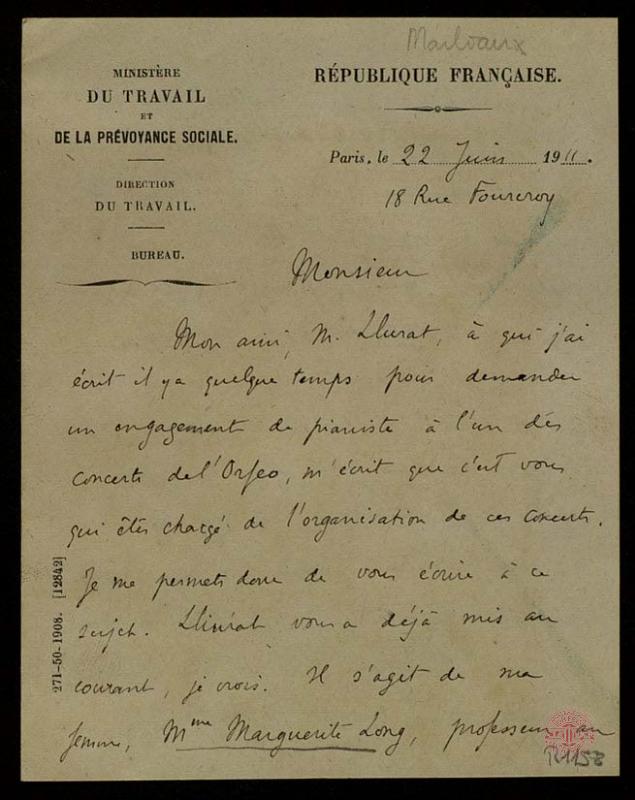 Marliaux
MINISTÈRE
DU TRAVAIL
ET
DE LA PRÉVOYANCE SOCIALE.
DIRECTION
DU TRAVAIL.
BUREAU.
RÉPUBLIQUE FRANÇAISE.
Paris, le 22 Juin 1911.
18 Rue Fourcroy
Monsieur
Mon ami, M. Llurat, à qui j'ai
écrit il y a quelque temps pour demander
un engagement de pianiste à l'un des
concerts de l'Orfeo, m'écrit que c'est vous
qui êtes chargé de l'organisation de ces concerts.
Je me permets donc de vous écrire à ce
sujet. Lliurat vous a déjà mis au
courant, je crois. Il s'agit de ma
femme, Mme Marguerite Long, professeur au
271-50-1908. [12842]
R1158